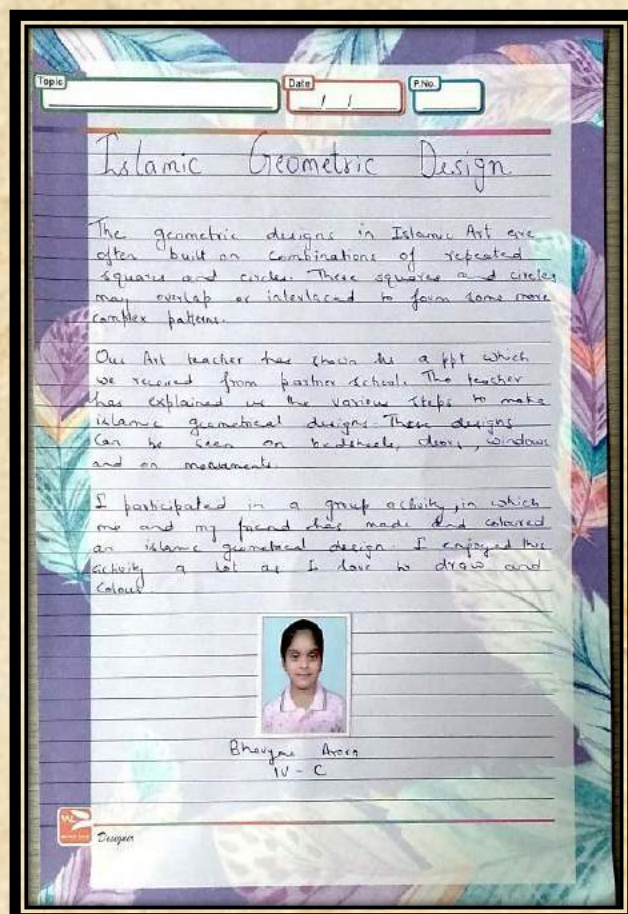 Topic
Date
P.No.
/ /
Islamic Geometric Design
The geometric designs in Islamic Art are
often built on combinations of repeated
squares and circles. These squares and circles
may overlap or interlaced to form some more
complex patterns.
Our Art teacher has shown us a ppt which
we received from partner school. The teacher
has explained us the various steps to make
islamic geometrical designs. These designs
can be seen on bedsheets, doors, windows
and on monuments.
I participated in a group activity, in which
me and my friend has made and coloured
an islamic geometrical design. I enjoyed this
activity a lot as I love to draw and
colour.
Arora
IV - C
Designer